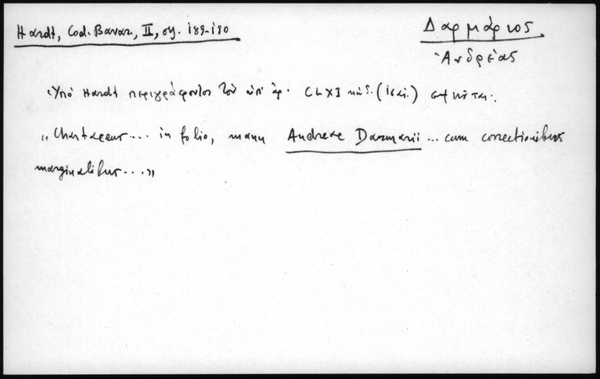 Hardt, Cod. Bavar, II, σσ. 189-190
Δαρμάριος
Ἀνδρέας
Ὑπὸ Hardt περιγράφοντος τὸν ὑπ' ἀρ. CLXI κώδ.
„Chartaceus... in folio, manu Andreae Darmarii... cum correctionibus
marginalibus...„